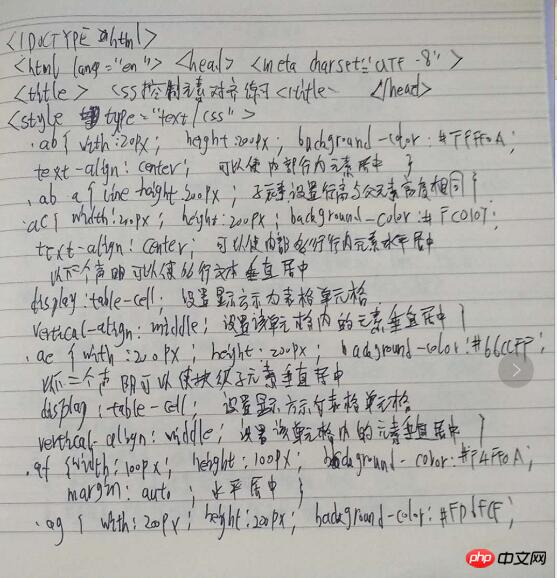 <!DOCTYPE html>
<html lang="en"> <head> <meta charset="UTF-8">
<title> css控制元素对齐练习 <title> </head>
<style type="text/css">
.ab{ with:20px; height:200px; background-color:#FFFF0A;
text-align:center; 可以使内部行内元素居中 }
.ab a{ line height:200px; 子元素设置行高与父元素高度相同}
.ac{ width:20px; height:200px; background-color:#
text-align:center; 可以使内部行内元素水平居中
以下二个声明可以使多行文本垂直居中
display:table-cell; 设置显示方示为表格单元格
vertical-align:middle; 设置该单元格内的元素垂直居中}
.ae { with:200px; height:200px; background-color:#66CCFF;
以下二个声明可以使块级子元素垂直居中
display:table-cell; 设置显示方示为表格单元格
vertical-align:middle; 设置该单元格内的元素垂直居中}
.af {width:100px; height:100px; background-color:#F4FF0A;
margin:auto; 水平居中 }
.ag { with:200px; height:200px; background-color:#FD6FCF;
php 中文网